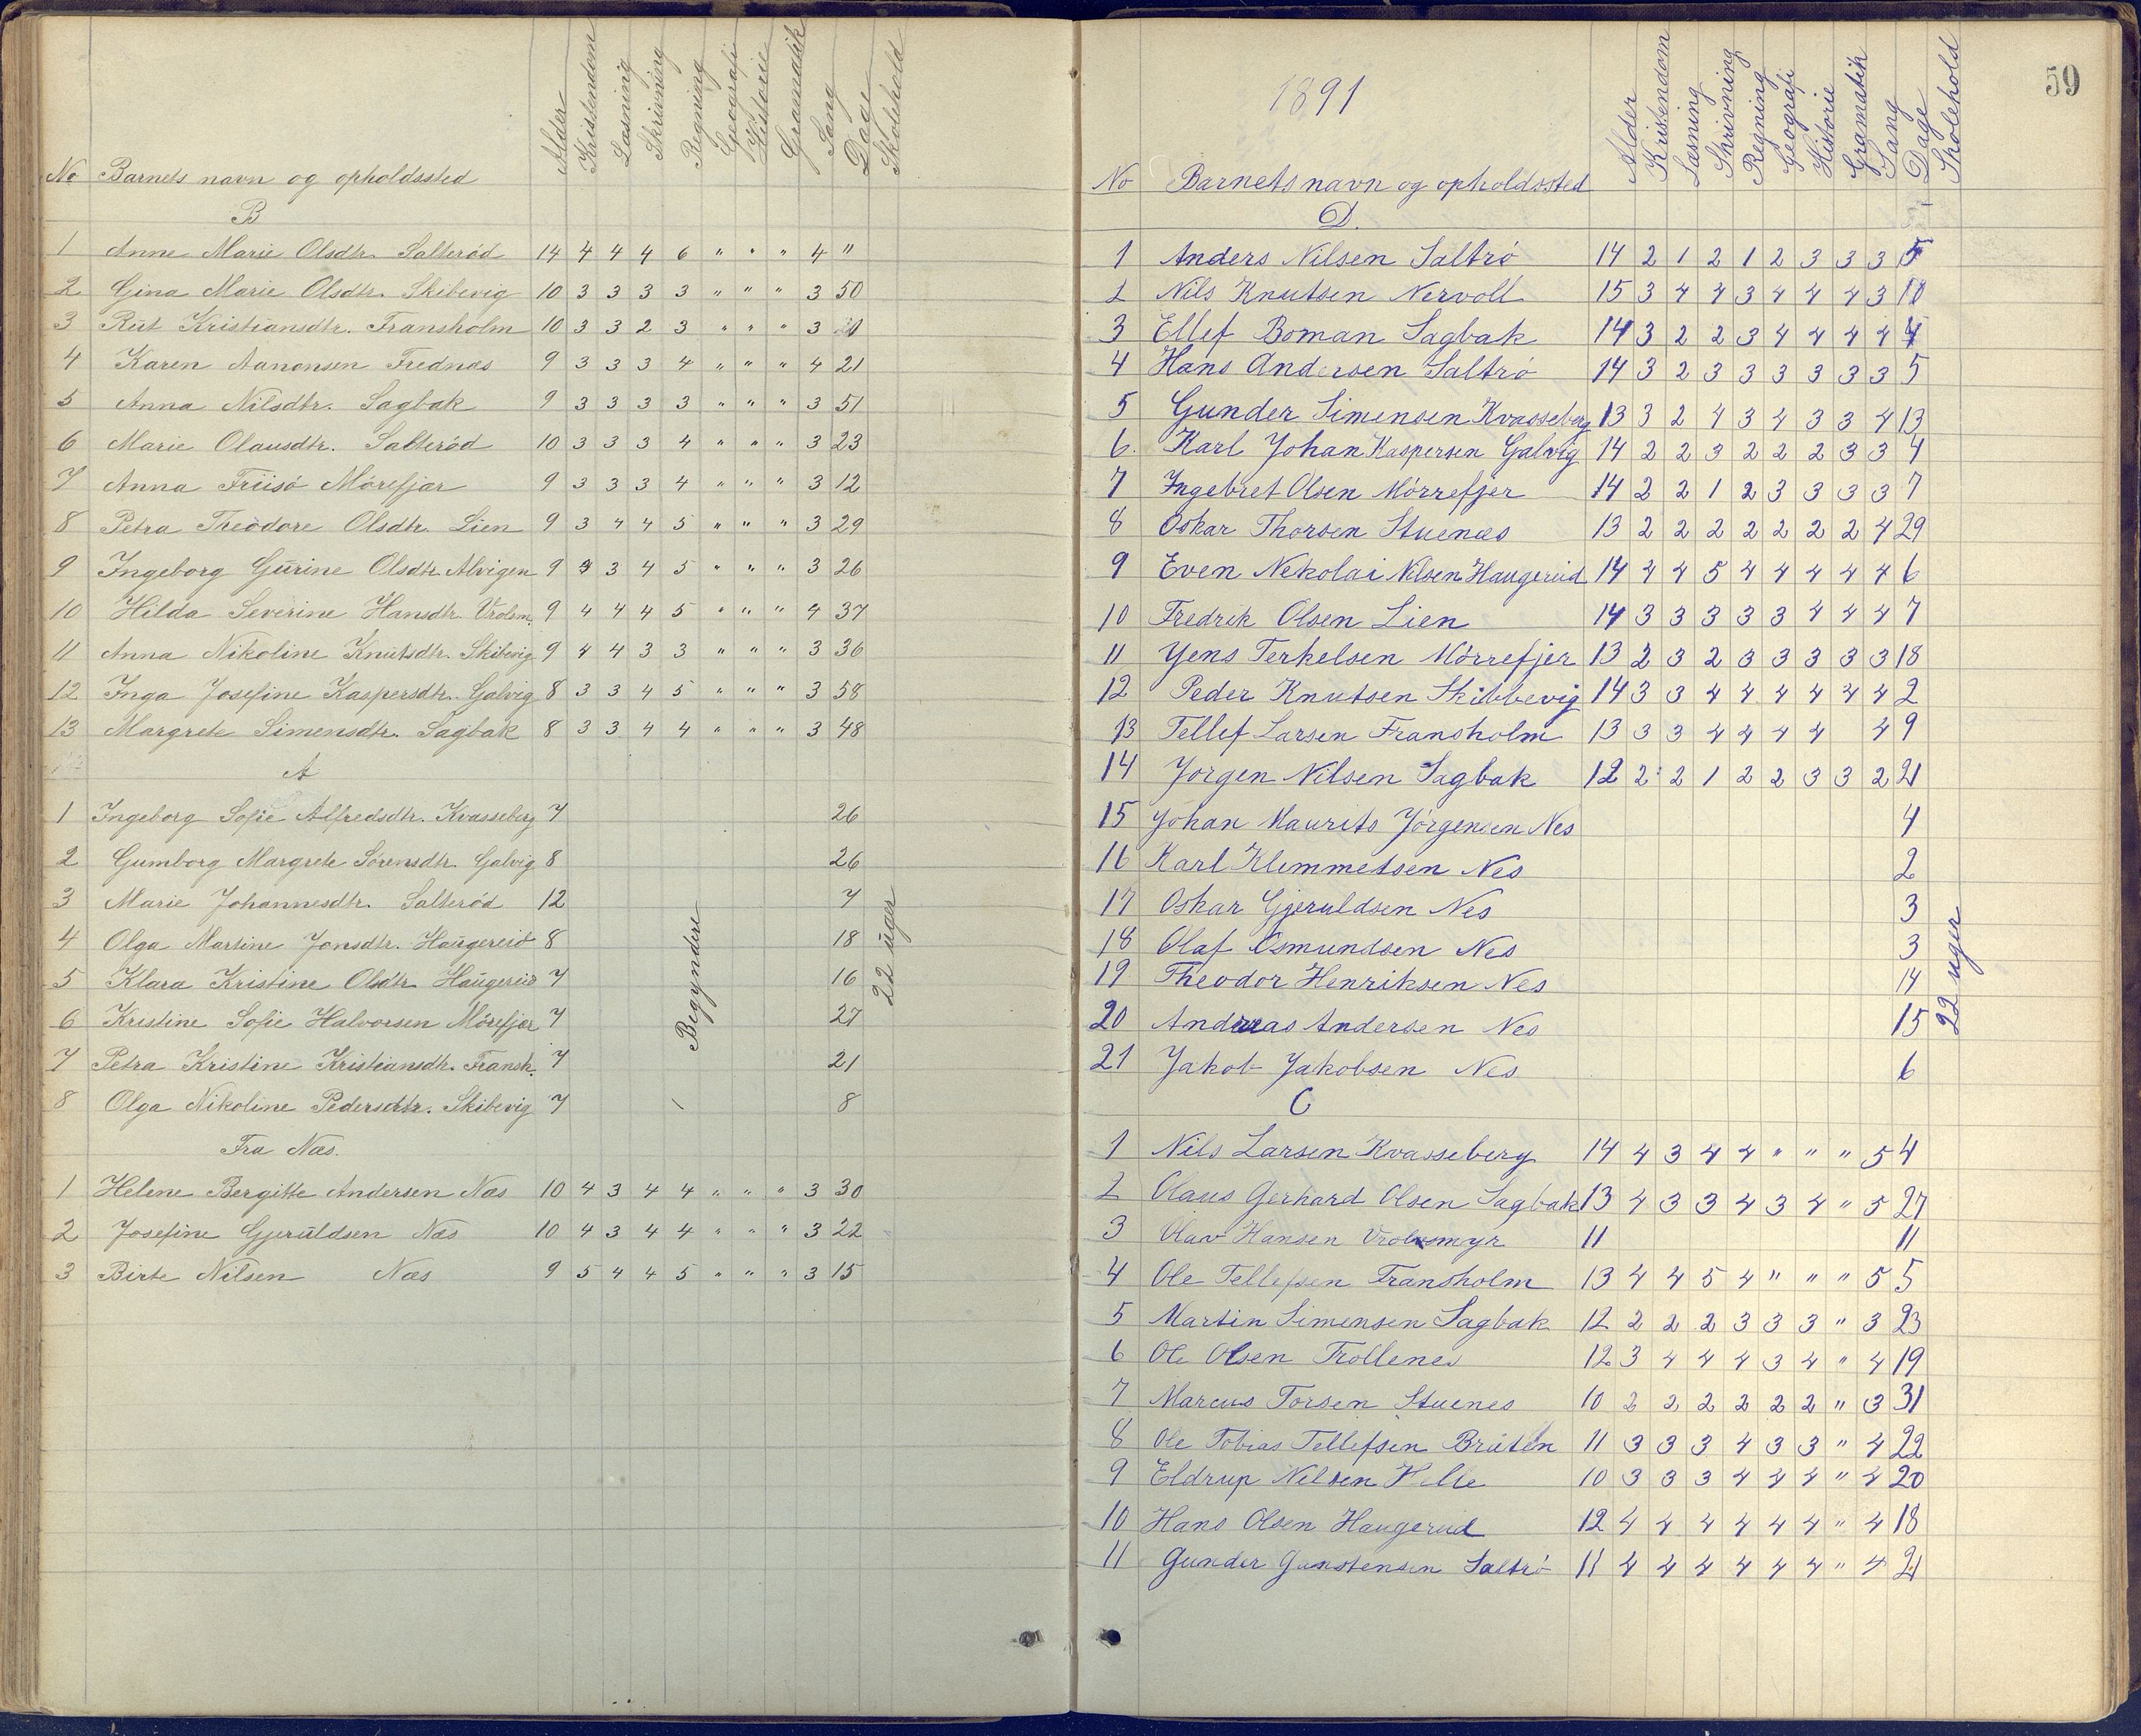 No Barnets navn og opholdssted Alder Kristendom Læsning Skrivning Regning Geografi Historie Gramatik Sang Dage Skolehold
B
1 Anne Marie Olsdtr. Salterød 14 4 4 4 6 " " " 4 "
2 Gina Marie Olsdtr. Skibevig 10 3 3 3 3 " " " 3 50
3 Rut Kristiansdtr. Fransholm 10 3 3 2 3 " " " 3
4 Karen Aanonsen Frednæs 9 3 3 3 4 " " " 4 21
5 Anna Nilsdtr. Sagbak 9 3 3 3 3 " " " 3 51
6 Marie Olausdtr. Salterød 10 3 3 3 4 " " " 3 23
7 Anna Friisø Mørefjær 9 3 3 3 4 " " " 3 12
8 Petra Theodore Olsdtr. Lien 9 3 4 4 5 " " " 3 29
9 Ingeborg Gurine Olsdtr. Alvigen 9 3 4 5 " " " 3 26
10 Hilda Severine Hansdtr. Vrolsm. 9 4 4 4 5 " " " 4 37
11 Anna Nikoline Knutsdtr. Skibevig 9 4 4 3 3 " " " 3 36
12 Inga Josefine Kaspersdtr. Galvig 8 3 3 4 5 " " " 3 58
13 Margrete Simensdtr. Sagbak 8 3 3 4 4 " " " 3 48
A
1 Ingeborg Sofie Alfredsdtr. Kvasseberg 7 26
2 Gumborg Margrete Sørensdtr. Galvig 8 26
3 Marie Johannesdtr. Salterød 12 7
4 Olga Martine Jonsdtr. Haugereid 8 18
5 Klara Kristine Olsdtr. Haugereid 7 16
6 Kristine Sofie Halvorsen Mørefjær 7 27
7 Petra Kristine Kristiansdtr. Fransh. 7 21
8 Olga Nikoline Pedersdtr. Skibevig 7 8
Begyndere
22 uger
Fra Næs.
1 Helene Bergitte Andersen Næs 10 4 3 4 4 " " " 3 30
2 Josefine Gjeruldsen Næs 10 4 3 4 4 " " " 3 22
3 Birte Nilsen Næs 9 5 4 4 5 " " " 3 15
59
1891
No Barnets navn og opholdssted Alder Kristendom Læsning Skrivning Regning Geografi Historie Gramatik Sang Dage Skolehold
D.
1 Anders Nilsen Saltrø 14 2 1 2 1 2 3 3 3 5
2 Nils Knutsen Nervoll 15 3 4 4 3 4 4 4 3 10
3 Ellef Boman Sagbak 14 3 2 2 3 4 4 4 4 4
4 Hans Andersen Saltrø 14 3 2 3 3 3 3 3 3 5
5 Gunder Simensen Kvasseberg 13 3 2 4 3 4 3 3 4 13
6. Karl Johan Kaspersen Galvig 14 2 2 3 2 2 2 3 3 4
7 Ingebret Olsen Mørrefjer 14 2 2 1 2 3 3 3 3 7
8 Oskar Thorsen Stuenæs 13 2 2 2 2 2 2 2 4 29
9 Even Nekolai Nilsen Haugereid 14 4 4 5 4 4 4 4 4 6
10 Fredrik Olsen Lien 14 3 3 3 3 3 4 4 4 7
11 Jens Terkelsen Mørrefjer 13 2 3 2 3 3 3 3 3 18
12 Peder Knutsen Skibbevig 14 3 3 4 4 4 4 4 4 2
13 Tellef Larsen Fransholm 13 3 3 4 4 4 4 4 9
14 Jørgen Nilsen Sagbak 12 2 2 1 2 2 3 3 2 21
15 Johan Maurits Jørgensen Nes 4
16 Karl Klemmetsen Nes 2
17 Oskar Gjeruldsen Nes 3
18 Olaf Osmundsen Nes 3
19 Theodor Henriksen Nes 14
20 Andreas Andersen Nes 15
21 Jakob Jakobsen Nes 6
22 uger
C
1 Nils Larsen Kvasseberg 14 4 3 4 4 " " " 5 4
2 Olaus Gerhard Olsen Sagbak 13 4 3 3 4 3 4 " 5 27
3 Olav Hansen Vrolsmyr 11 11
4 Ole Tellefsen Fransholm 13 4 4 5 4 " " " 5 5
5 Martin Simensen Sagbak 12 2 2 2 3 3 3 " 3 23
6 Ole Olsen Trollenes 12 3 4 4 4 3 4 " 4 19
7 Marcus Torsen Stuenes 10 2 2 2 2 2 2 " 3 31
8 Ole Tobias Tellefsen Bråten 11 3 3 3 4 3 3 " 4 22
9 Eldrup Nilsen Helle 10 3 3 3 4 4 4 " 4 20
10 Hans Olsen Haugerud 12 4 4 4 4 4 4 " 4 18
11 Gunder Gunstensen Saltrø 11 4 4 4 4 4 4 " 4 21